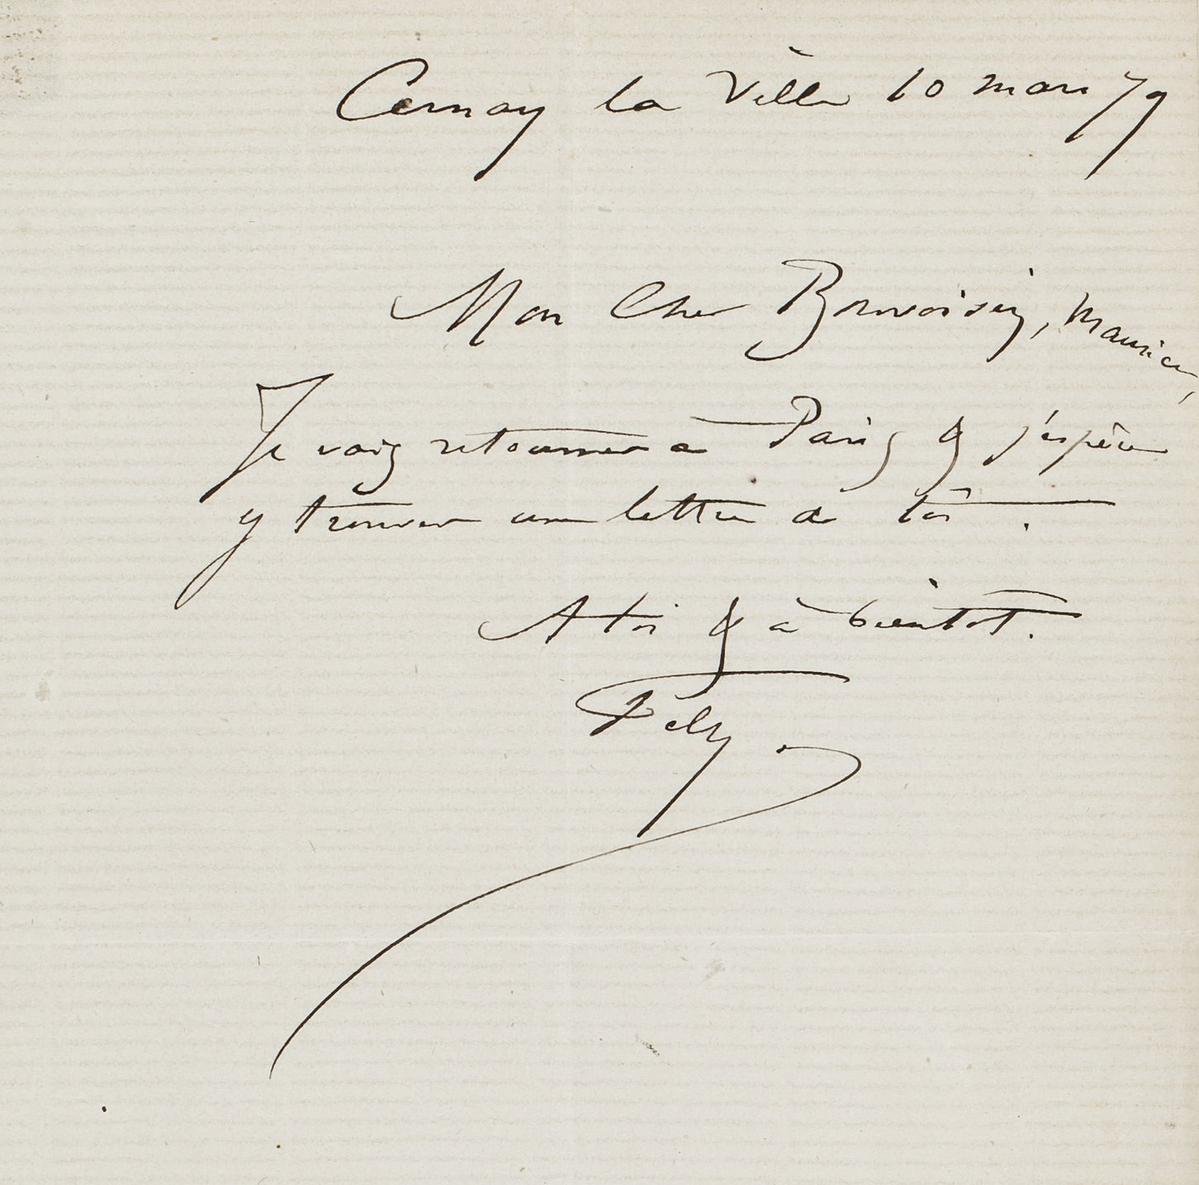 Cernay la Ville 10 mars 79
Mon Cher Bonvoisin, Maurice,
Je vais retourner à Paris & j'espère
y trouver une lettre de toi.
A toi & à bientot.
Fély